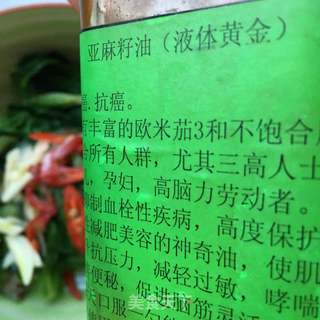 亚麻籽油（液体黄金）
癌.抗癌。
丰富的欧米茄3和不饱合
合所有人群，尤其三高人士
孕妇，高脑力劳动者。
制血栓性疾病，高度保护
减肥美容的神奇油，使肌
抗压力，减轻过敏，哮喘
便秘，促进脑筋灵活
口服一勺
美食天下